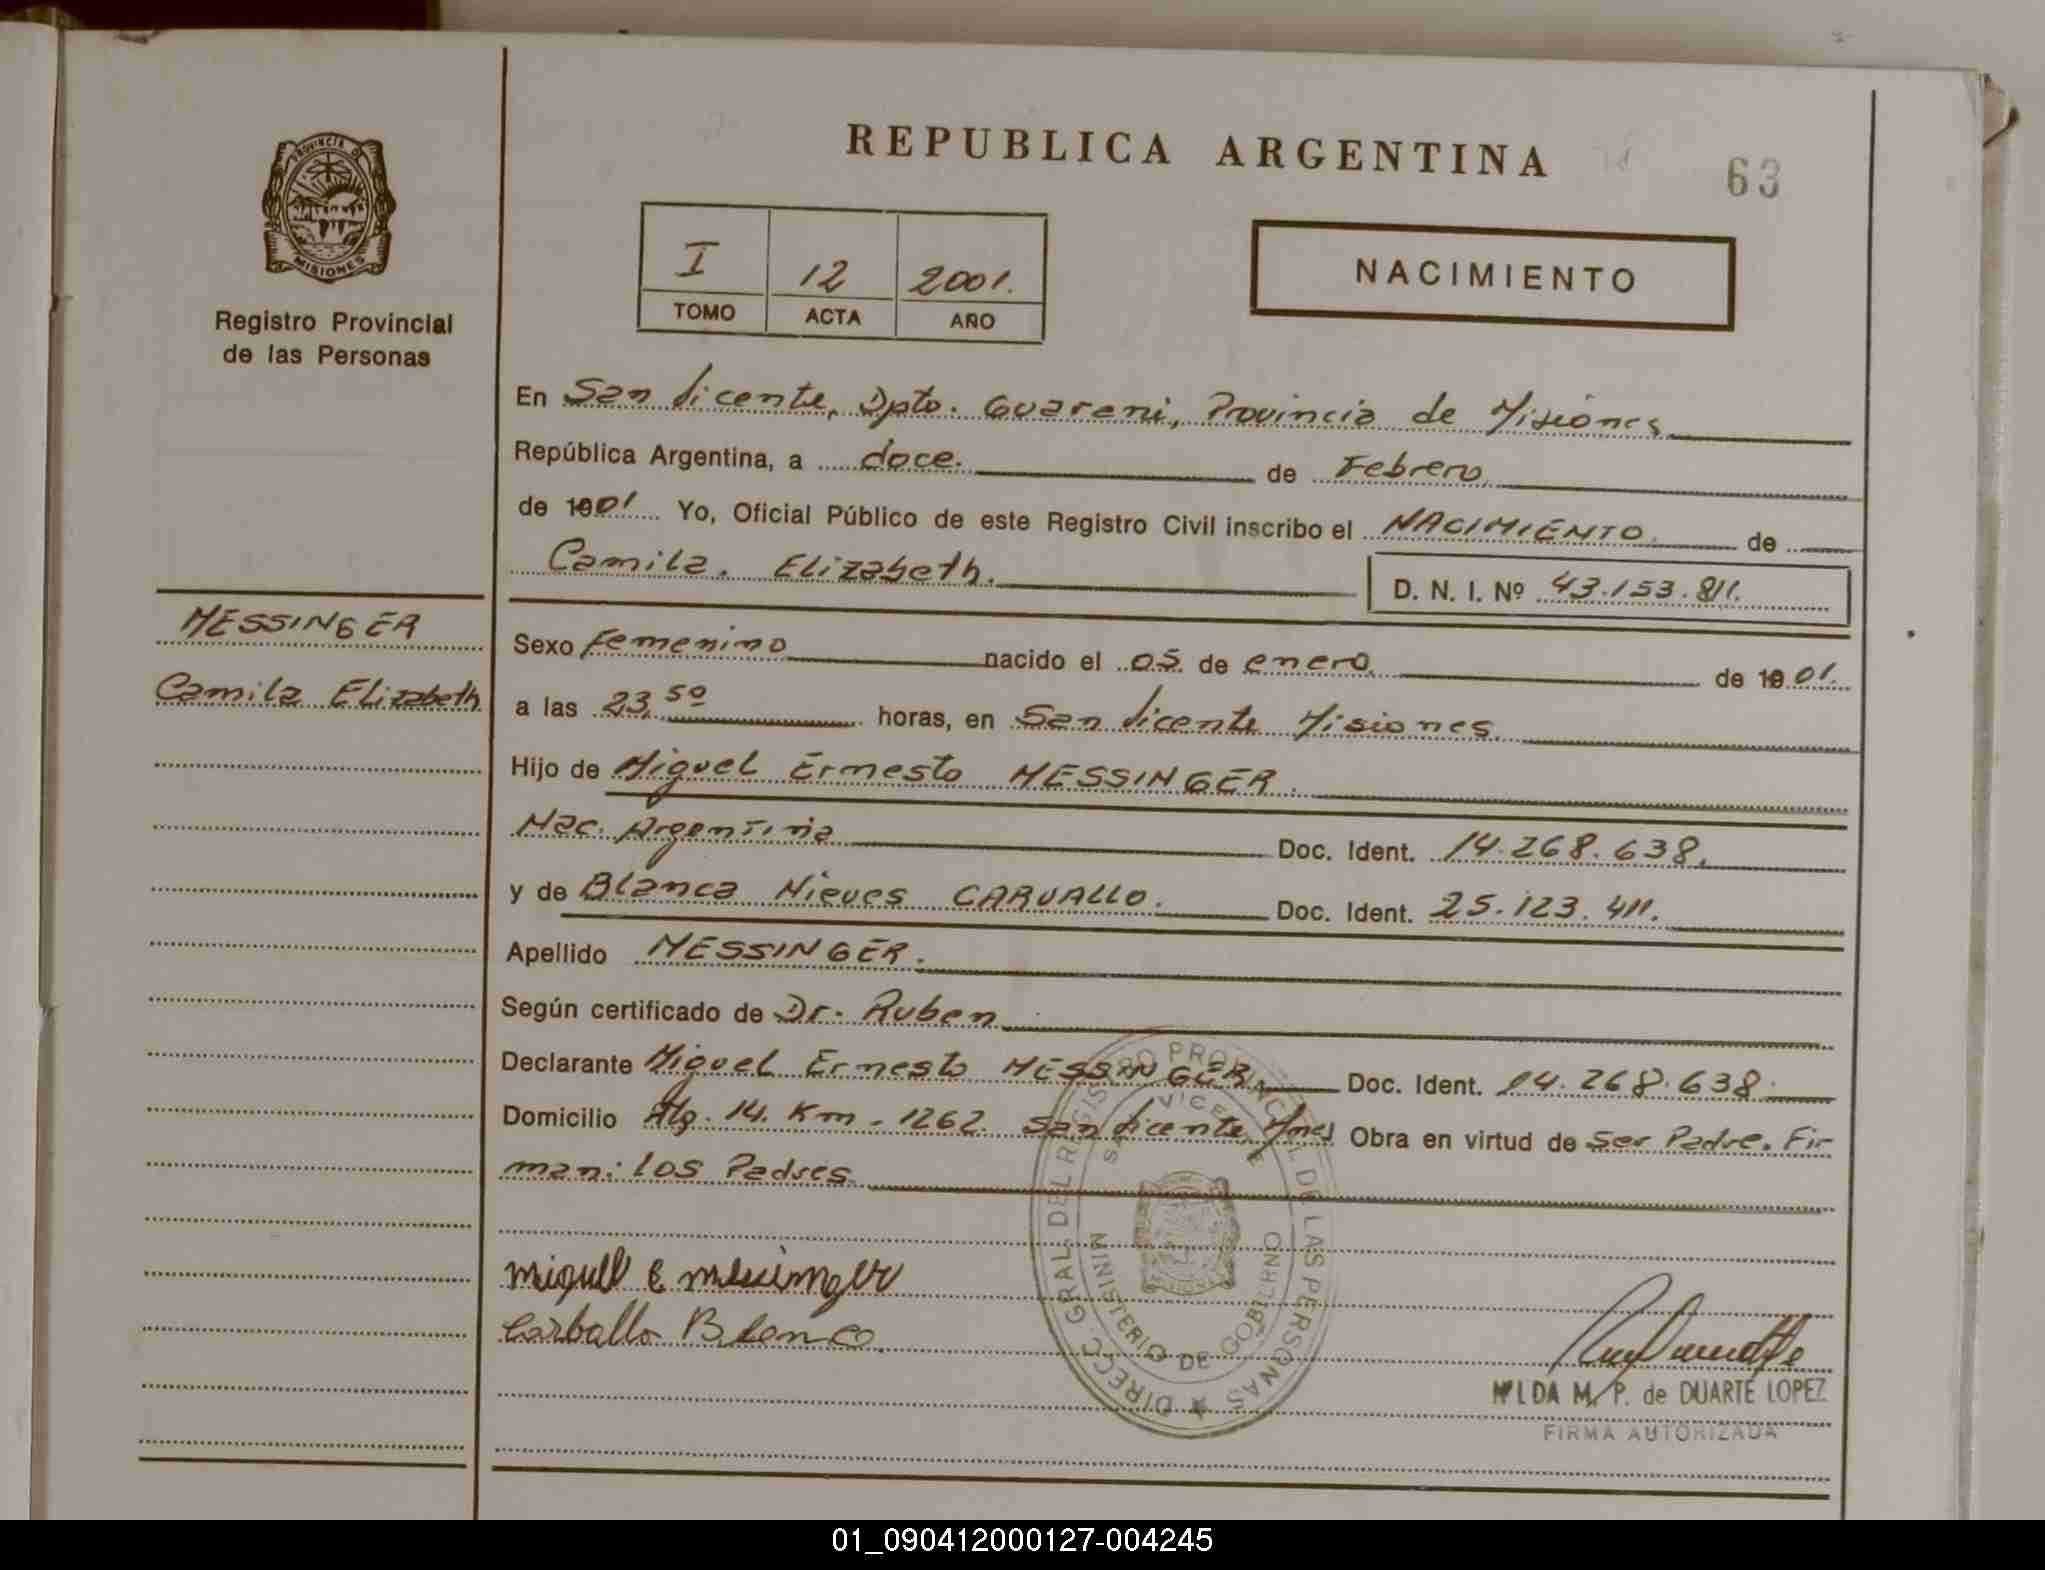 REPUBLICA ARGENTINA
63
PROVINCIA DE
MISIONES
Registro Provincial
de las Personas
I 12 2001.
TOMO ACTA AÑO
NACIMIENTO
En San Vicente, Dpto. Guarani, Provincia de Misiones
República Argentina, a doce. de Febrero
de 1901 Yo, Oficial Público de este Registro Civil inscribo el NACIMIENTO de
Camila. Elizabeth.
D. N. I. Nº 43.153.811.
MESSINGER
Camila Elizabeth
Sexo Femenino nacido el 05 de enero. de 1901.
a las 23,50 horas, en San Vicente Misiones
Hijo de Miguel Ernesto MESSINGER.
Nac. Argentina Doc. Ident. 14.268.638.
y de Blanca Nieves CARVALLO. Doc. Ident. 25.123.411.
Apellido MESSINGER.
Según certificado de Dr. Ruben
Declarante Miguel Ernesto MESSINGER. Doc. Ident. 14.268.638.
Domicilio Alg. 14. Km. 1262. San Vicente Mnes Obra en virtud de Ser Padre. Fir-
man: los Padres.
DIRECC. GRAL. DEL REGISTRO PROVINCIAL DE LAS PERSONAS
SAN VICENTE
MINISTERIO DE GOBIERNO
miguel e messinger
Carballo Blanca
NILDA M. P. de DUARTE LOPEZ
FIRMA AUTORIZADA
01_090412000127-004245